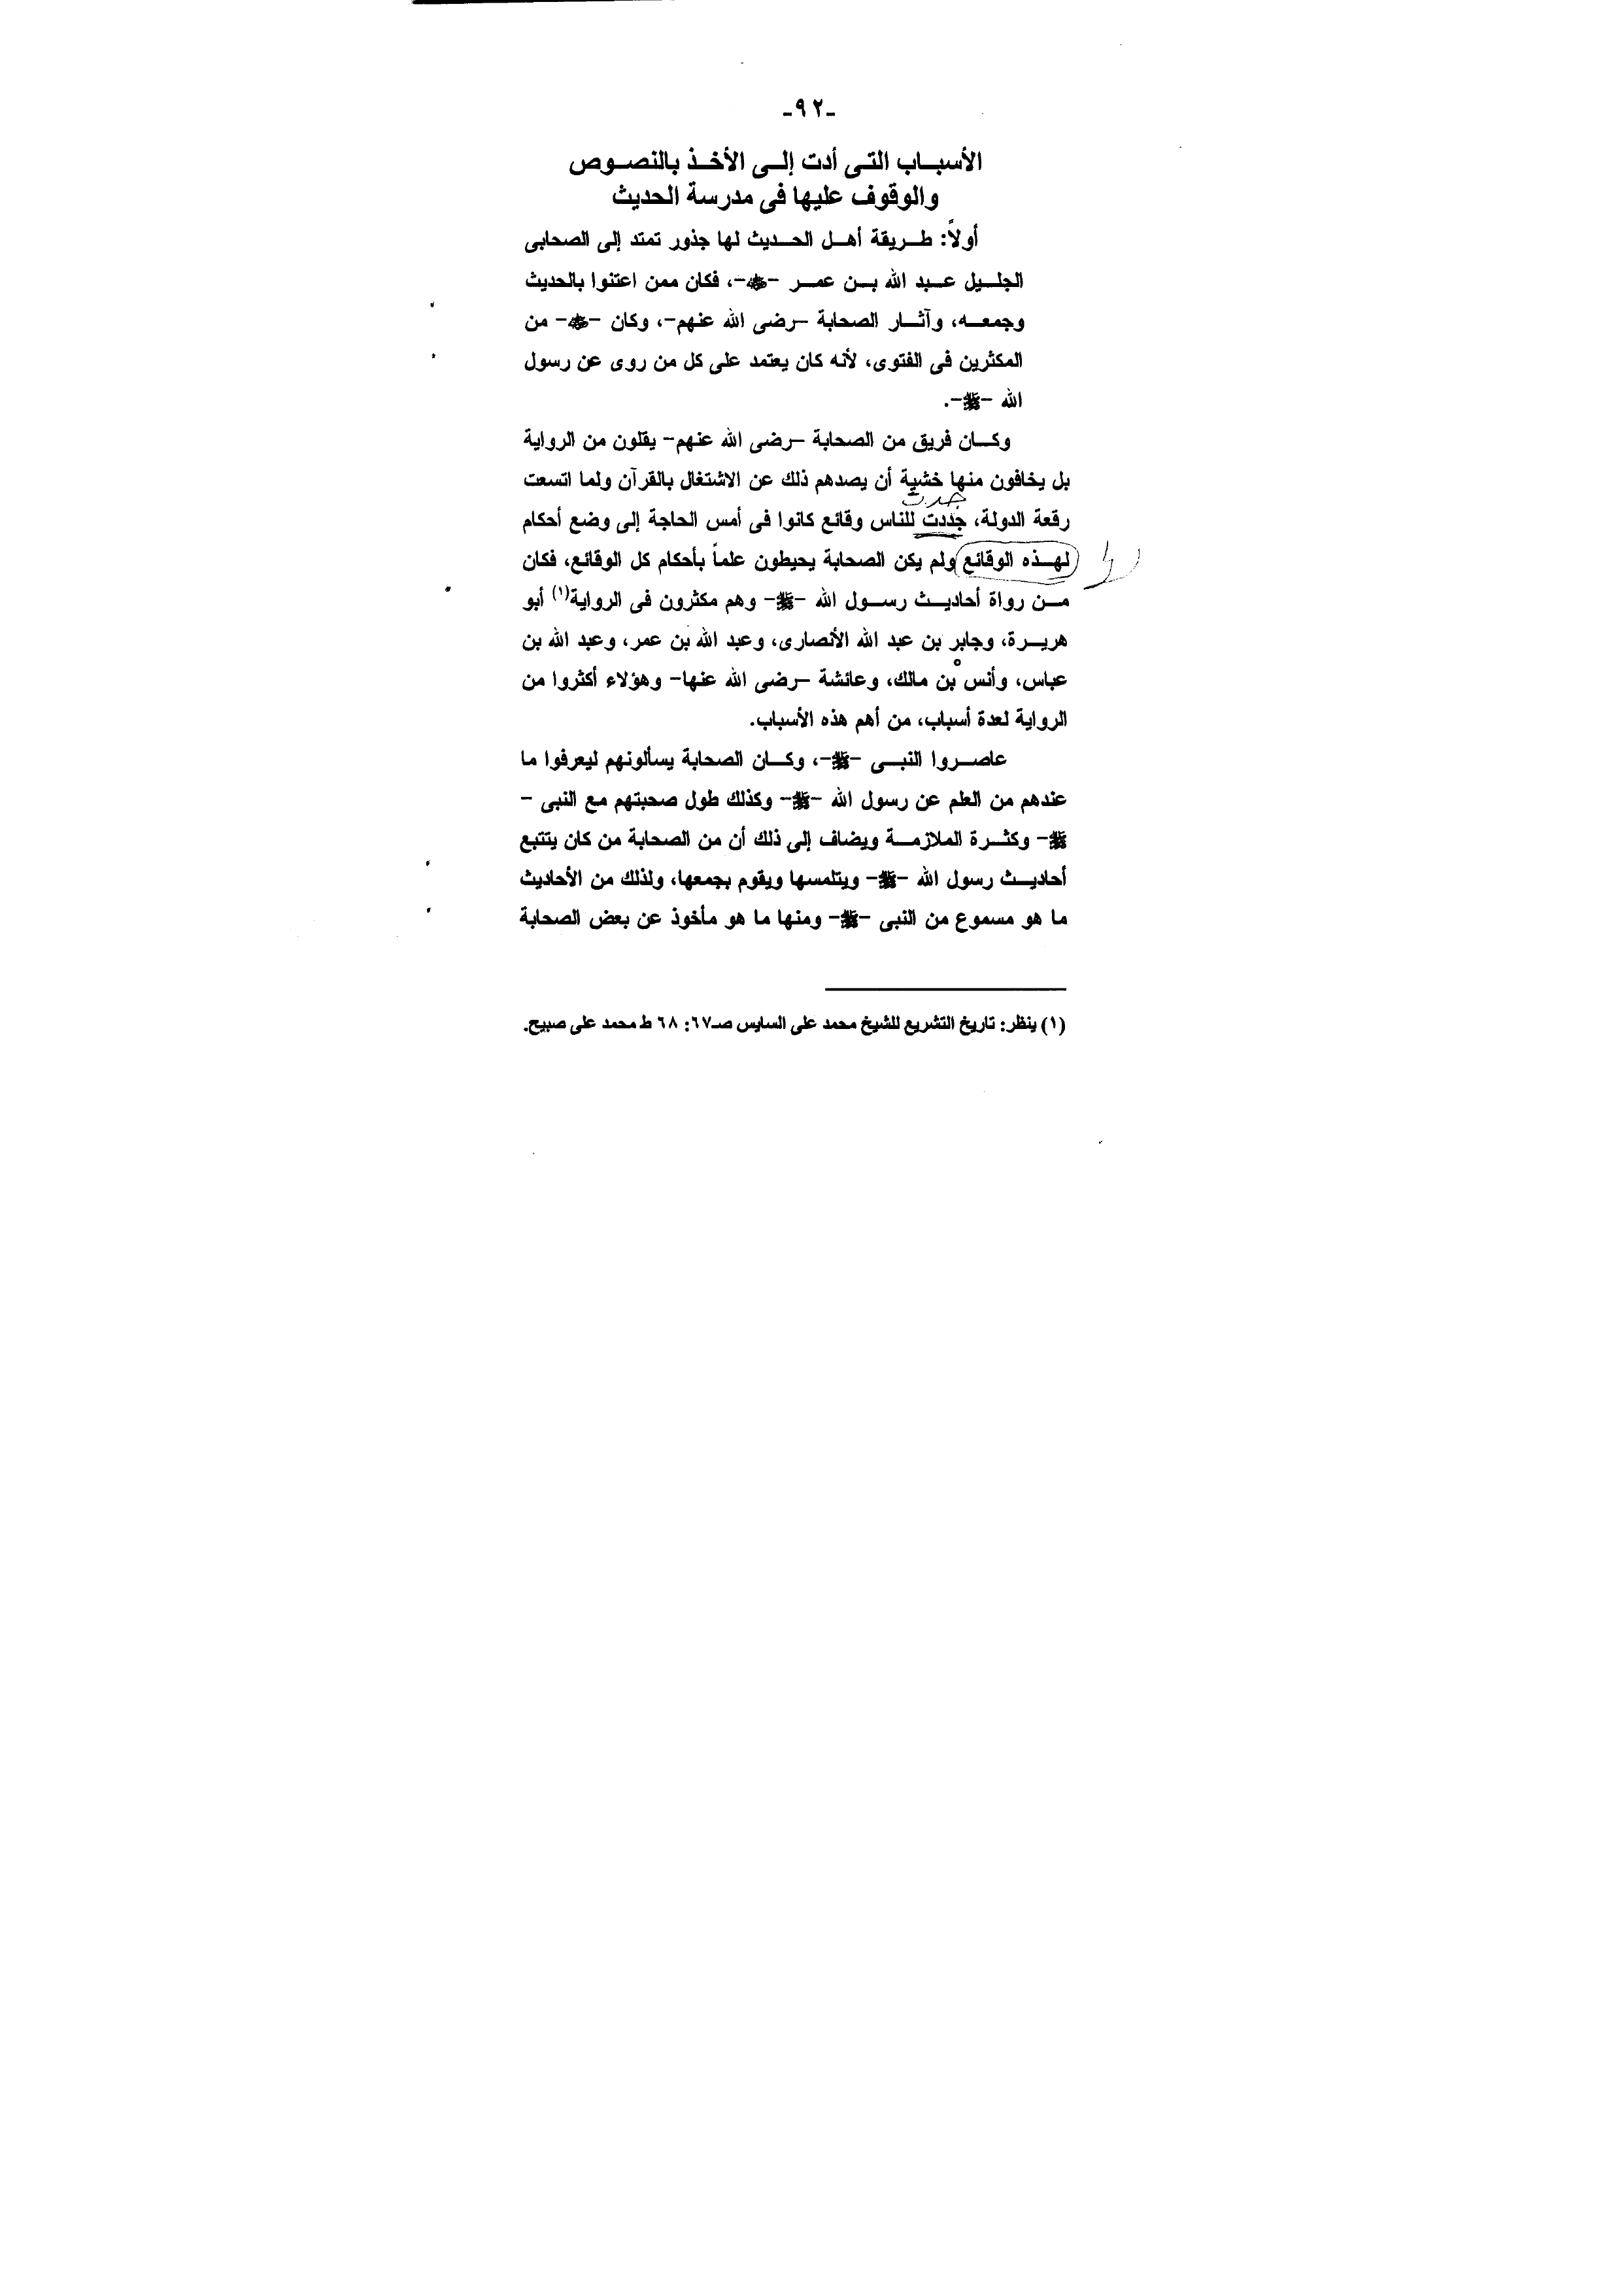 -٩٢-
الأسباب التى أدت إلى الأخذ بالنصوص
والوقوف عليها فى مدرسة الحديث
أولاً: طريقة أهل الحديث لها جذور تمتد إلى الصحابى
الجليل عبد الله بن عمر -رضي الله عنه-، فكان ممن اعتنوا بالحديث
وجمعه، وآثار الصحابة -رضى الله عنهم-، وكان -رضي الله عنه- من
المكثرين فى الفتوى، لأنه كان يعتمد على كل من روى عن رسول
الله -ﷺ-.
وكان فريق من الصحابة -رضى الله عنهم- يقلون من الرواية
بل يخافون منها خشية أن يصدهم ذلك عن الاشتغال بالقرآن ولما اتسعت
جدت
رقعة الدولة، جددت للناس وقائع كانوا فى أمس الحاجة إلى وضع أحكام
لهذه الوقائع ولم يكن الصحابة يحيطون علماً بأحكام كل الوقائع، فكان
من رواة أحاديث رسول الله -ﷺ- وهم مكثرون فى الرواية(١) أبو
هريرة، وجابر بن عبد الله الأنصارى، وعبد الله بن عمر، وعبد الله بن
عباس، وأنس بن مالك، وعائشة -رضى الله عنها- وهؤلاء أكثروا من
الرواية لعدة أسباب، من أهم هذه الأسباب.
عاصروا النبى -ﷺ-، وكان الصحابة يسألونهم ليعرفوا ما
عندهم من العلم عن رسول الله -ﷺ- وكذلك طول صحبتهم مع النبى -
ﷺ- وكثرة الملازمة ويضاف إلى ذلك أن من الصحابة من كان يتتبع
أحاديث رسول الله -ﷺ- ويتلمسها ويقوم بجمعها، ولذلك من الأحاديث
ما هو مسموع من النبى -ﷺ- ومنها ما هو مأخوذ عن بعض الصحابة
(١) ينظر: تاريخ التشريع للشيخ محمد على السايس صـ٦٧: ٦٨ ط محمد على صبيح.